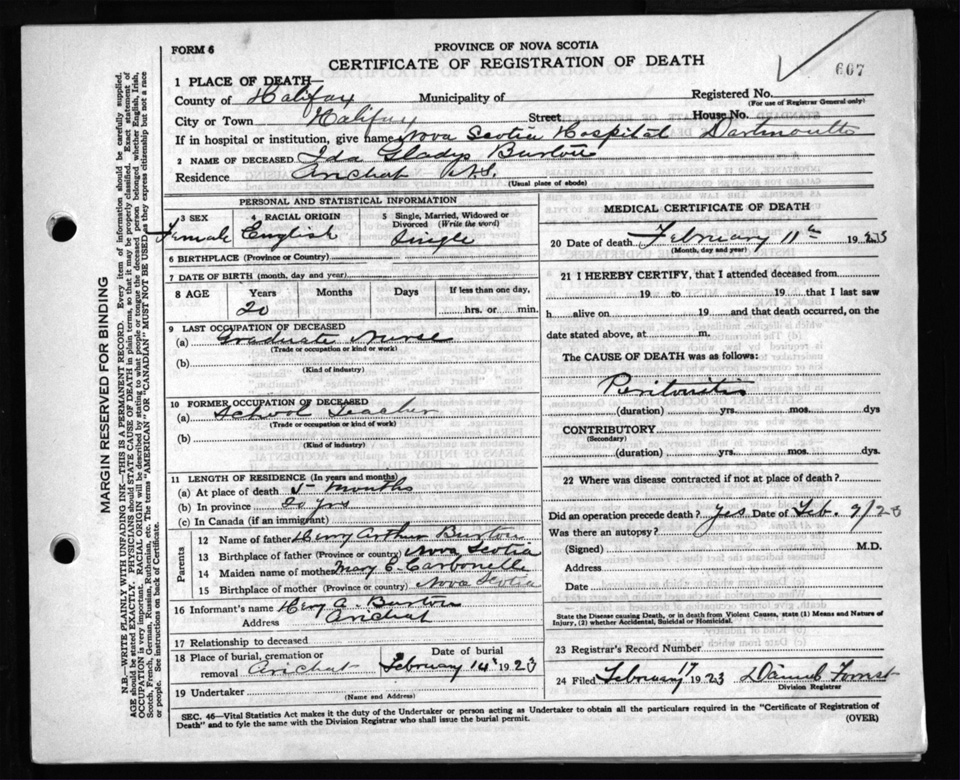 FORM 6
PROVINCE OF NOVA SCOTIA
CERTIFICATE OF REGISTRATION OF DEATH
607
1 PLACE OF DEATH—
County of Halifax Municipality of Registered No.
(For use of Registrar General only)
City or Town Halifax Street House No.
If in hospital or institution, give name Nova Scotia Hospital Dartmouth
2 NAME OF DECEASED Ida Gladys Burton
Residence Arichat N.S.
(Usual place of abode)
PERSONAL AND STATISTICAL INFORMATION
3 SEX 4 RACIAL ORIGIN 5 Single, Married, Widowed or Divorced (Write the word)
Female English Single
6 BIRTHPLACE (Province or Country)
7 DATE OF BIRTH (month, day and year)
8 AGE Years Months Days If less than one day,
20 hrs. or min.
9 LAST OCCUPATION OF DECEASED
(a) Graduate Nurse
(Trade or occupation or kind of work)
(b)
(Kind of industry)
10 FORMER OCCUPATION OF DECEASED
(a) School Teacher
(Trade or occupation or kind of work)
(b)
(Kind of industry)
11 LENGTH OF RESIDENCE (In years and months)
(a) At place of death 5 Months
(b) In province 20 yrs
(c) In Canada (if an immigrant)
Parents
12 Name of father Henry Arthur Burton
13 Birthplace of father (Province or country) Nova Scotia
14 Maiden name of mother Mary E. Carbonelle
15 Birthplace of mother (Province or country) Nova Scotia
16 Informant's name Hey A. Burton
Address Arichat
17 Relationship to deceased
18 Place of burial, cremation or removal Arichat Date of burial February 14" 1923
19 Undertaker
(Name and Address)
MEDICAL CERTIFICATE OF DEATH
20 Date of death February 11th 1923
(Month, day and year)
21 I HEREBY CERTIFY, that I attended deceased from
19 to 19 that I last saw
h alive on 19 and that death occurred, on the
date stated above, at m.
The CAUSE OF DEATH was as follows:
Peritonitis
(duration) yrs. mos. dys
CONTRIBUTORY
(Secondary)
(duration) yrs. mos. dys.
22 Where was disease contracted if not at place of death?
Did an operation precede death? Yes Date of Feb. 9/23
Was there an autopsy?
(Signed) M.D.
Address
Date
State the Disease causing Death, or in death from Violent Causes, state (1) Means and Nature of
Injury, (2) whether Accidental, Suicidal or Homicidal.
23 Registrar's Record Number
24 Filed February 17 1923 Daniel Forrest
Division Registrar
SEC. 46—Vital Statistics Act makes it the duty of the Undertaker or person acting as Undertaker to obtain all the particulars required in the "Certificate of Registration of
Death" and to fyle the same with the Division Registrar who shall issue the burial permit.
(OVER)
MARGIN RESERVED FOR BINDING
N.B.—WRITE PLAINLY WITH UNFADING INK—THIS IS A PERMANENT RECORD. Every item of information should be carefully supplied.
AGE should be stated EXACTLY. PHYSICIANS should STATE CAUSE OF DEATH in plain terms, so that it may be properly classified. Exact statement of
OCCUPATION is very important. RACIAL ORIGIN will be described by stating to what people or tongue the deceased person belonged whether English, Irish,
Scotch, French, German, Russian, Ruthenian, etc. The terms "AMERICAN" OR "CANADIAN" MUST NOT BE USED as they express citizenship but not a race
or people. See instructions on back of Certificate.